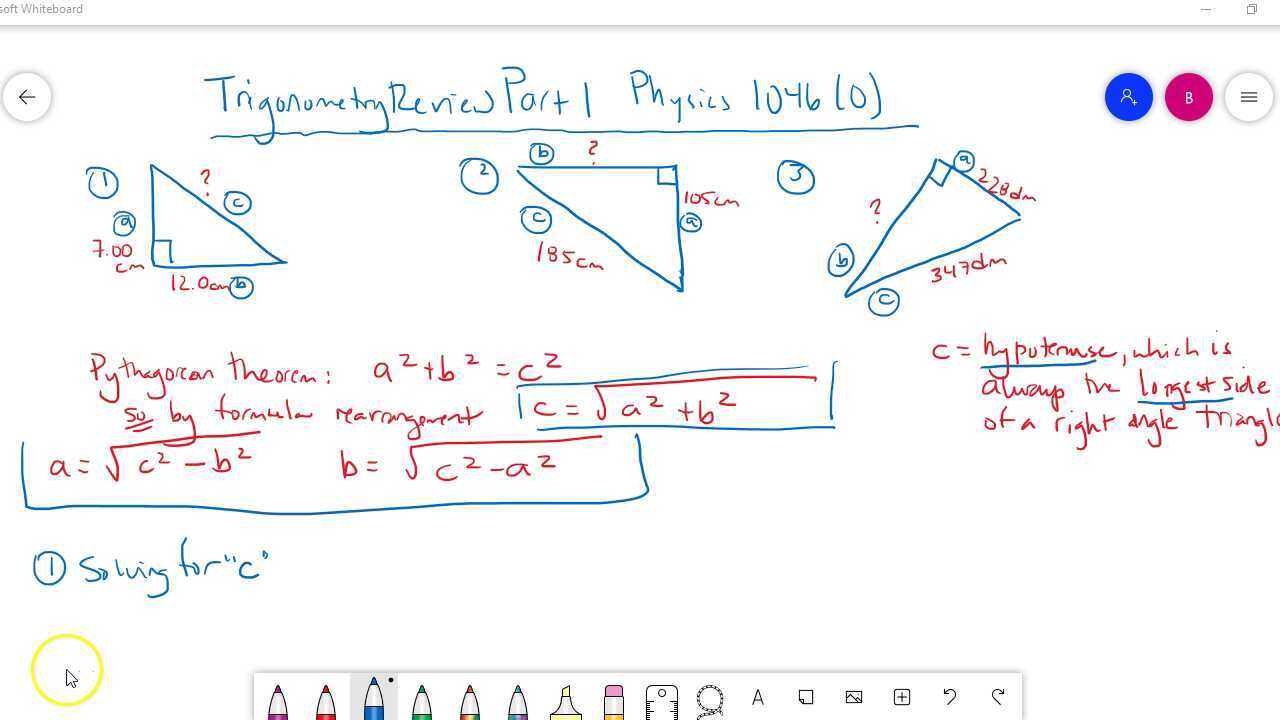 soft Whiteboard
Trigonometry Review Part 1 Physics 1046 (0)
B
1
?
c
a
7.00
cm
12.0cm b
2
b
?
105cm
a
c
185cm
3
a
228dm
?
b
347dm
c
Pythagorean theorem: a² + b² = c²
so by formular rearrangement c = √a² + b²
a = √c² − b² b = √c² − a²
c = hypotenuse, which is
always the longest side
of a right angle triangle
1 Solving for "c"
A